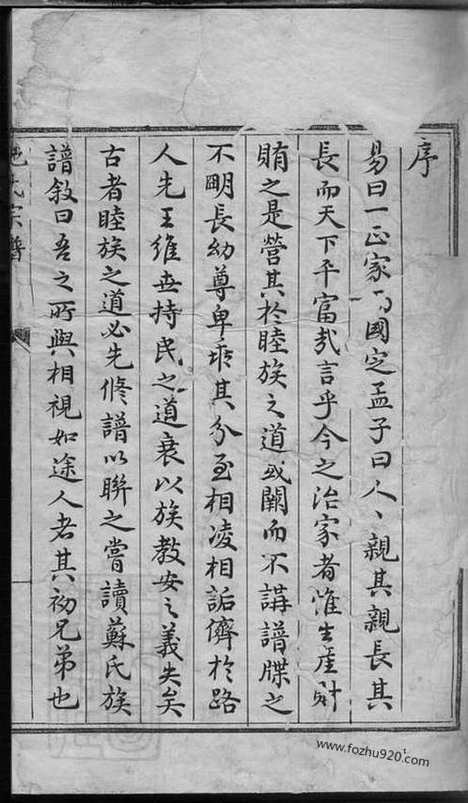 序
易曰一正家 國定孟子曰人、親其親長其
長而天下平富哉言乎今之治家者惟生產財
賄之是營其於睦族之道或闕而不講譜牒之
不明長幼尊卑乖其分至相凌相詬儕於路
人先王維世持民之道衰以族教安之義失矣
古者睦族之道必先修譜以聯之嘗讀蘇氏族
譜敘曰吾之所與相視如途人者其初兄弟也
氏宗譜
www.fozhu920.com